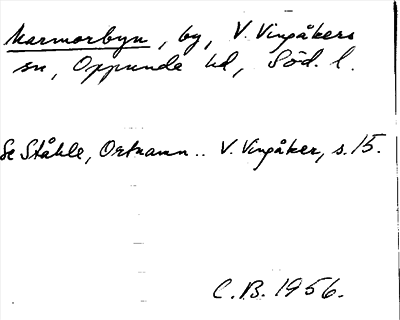 Marmorbyn, by, V. Vingåkers
sn, Oppunda hd, Söd. l.
Se Ståhle, Ortnamn.. V. Vingåker, s. 15.
C.B. 1956.